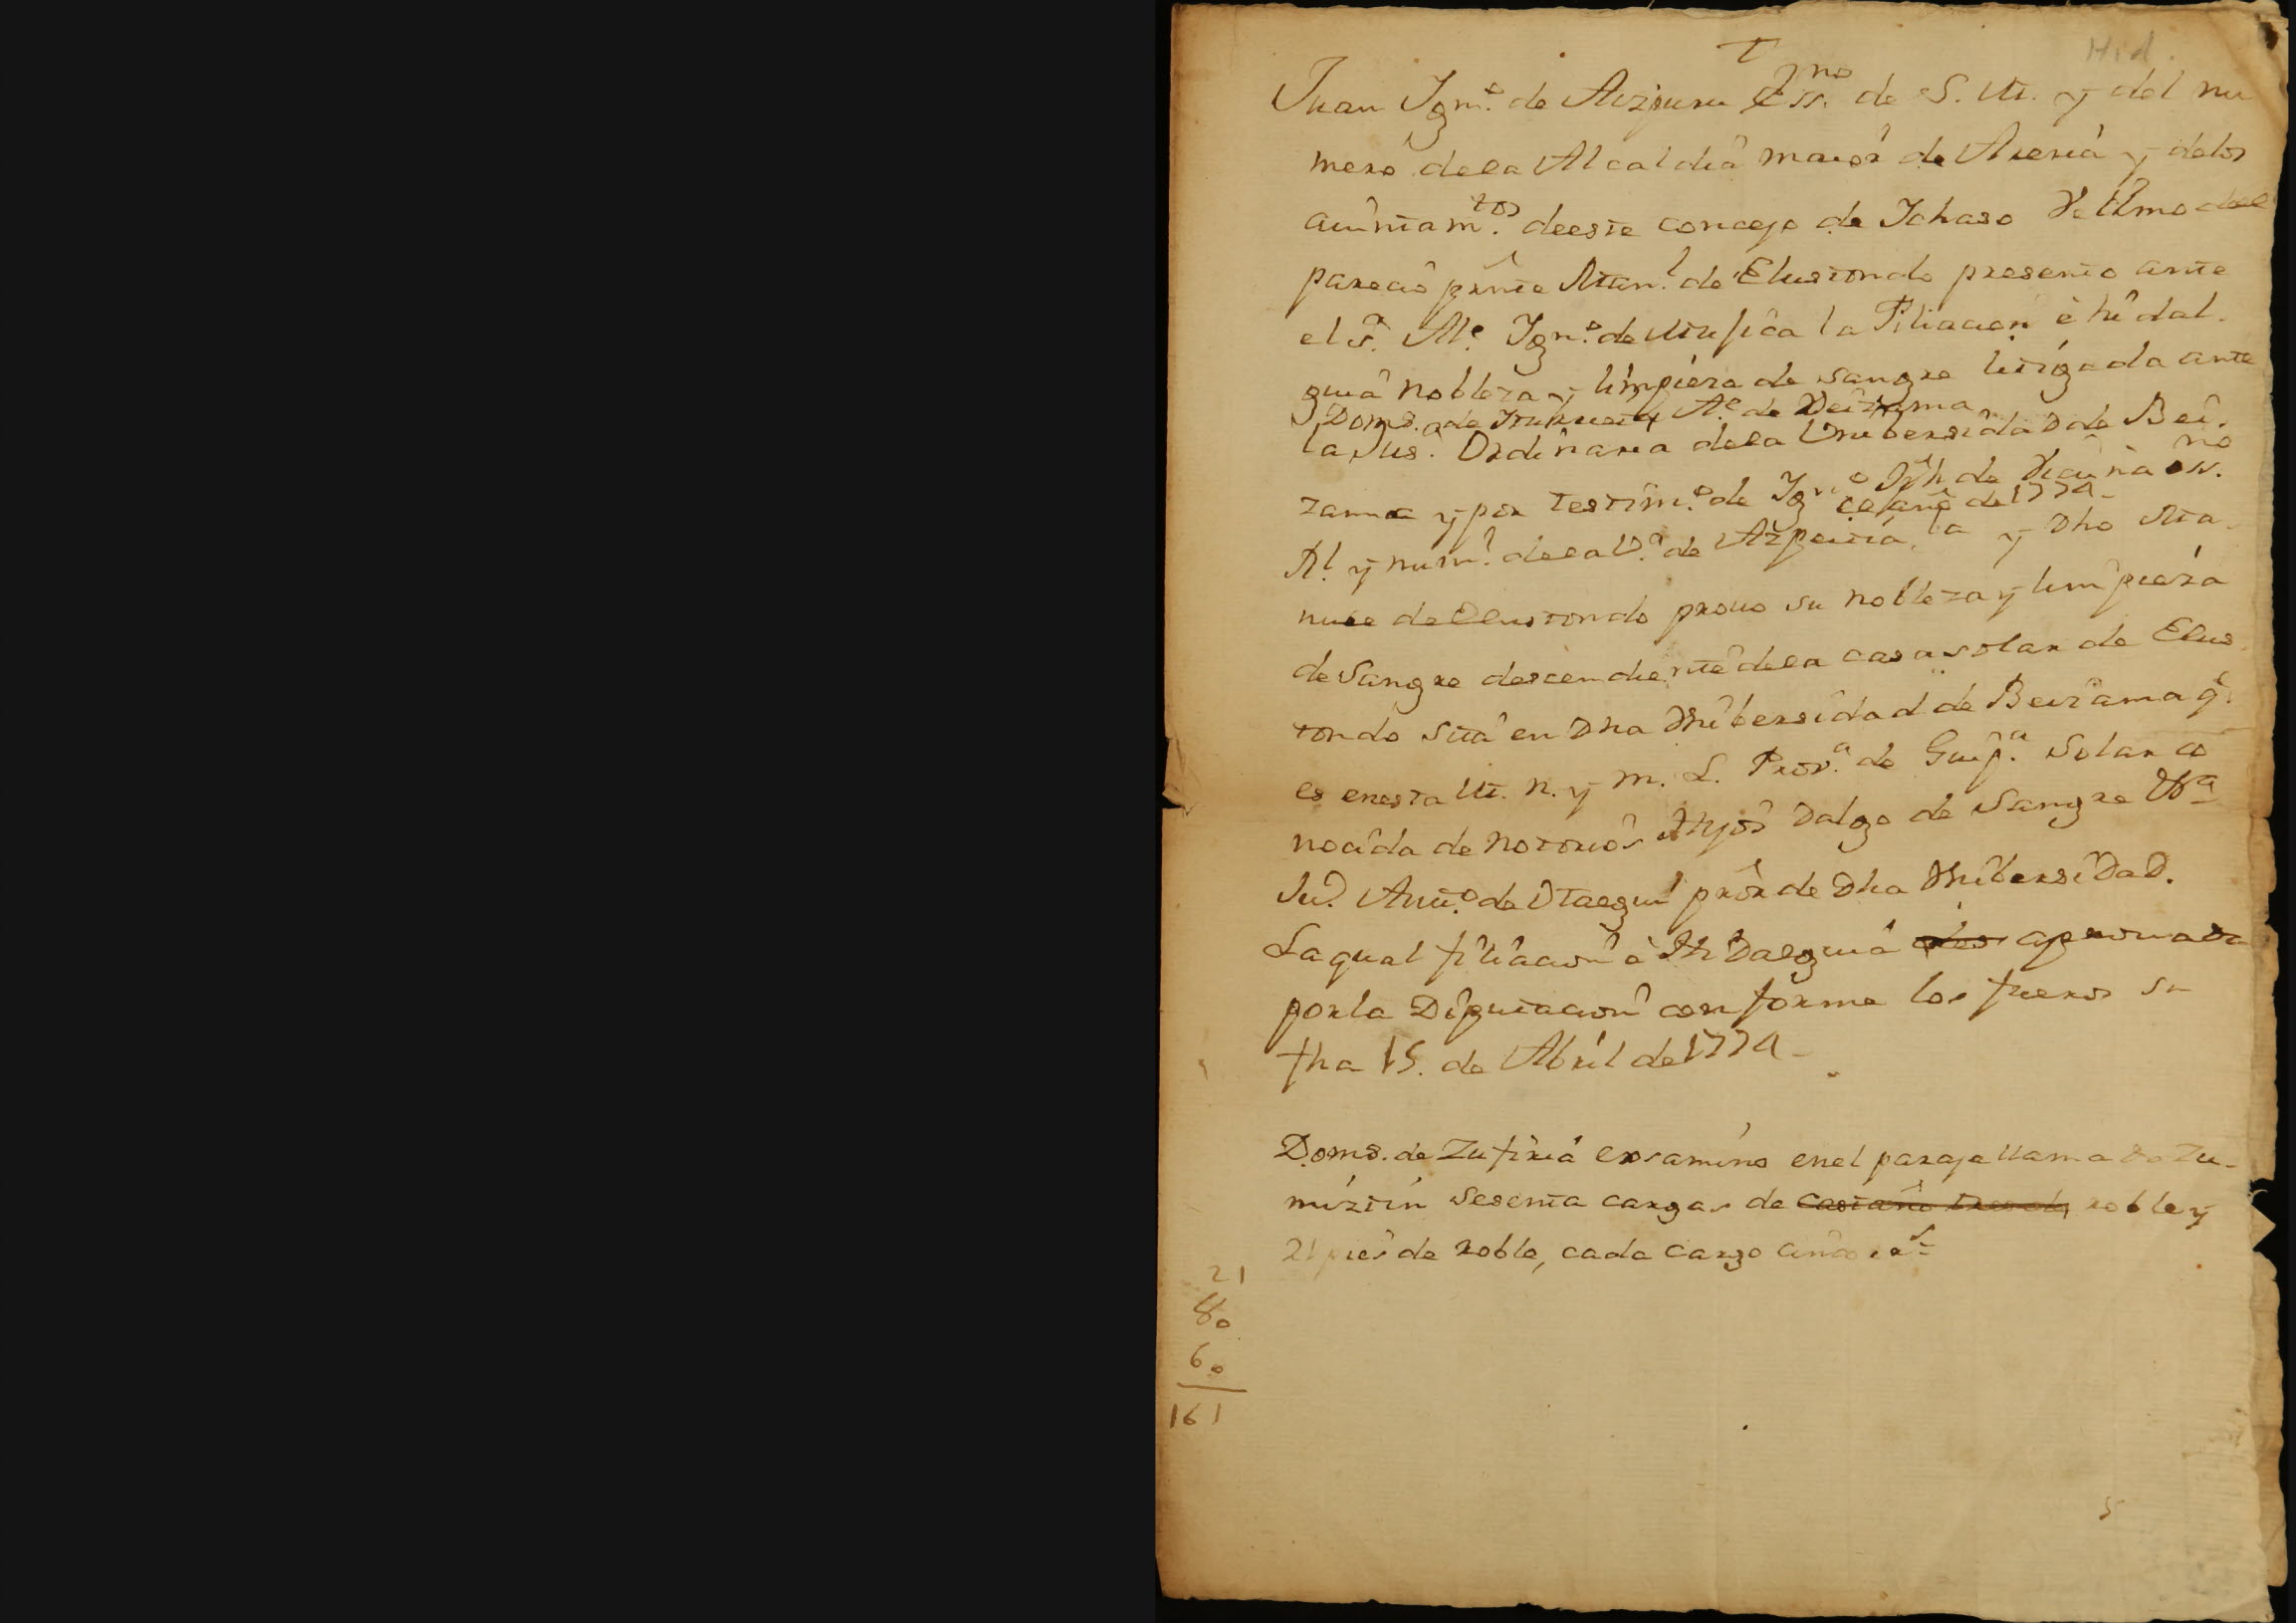 Hid.
Juan Ign.º de Aizpuru Ess.no de S. M. y del nu
mero dela Alcaldia maior de Areria y delos
aiuntam.tos deeste concejo de Ichaso
parecio press.te Man.l de Elustondo presento ante
el s.r Al.e Ign.º de Mufica la Filiacion è hidal.
guia nobleza y limpieza de sangre litigada ante
Doms.º de Iturzaeta A.e de Beizama
la Jus.ª Ordinaria dela Unibersidad de Bei.
zama y por testim.º de Ign.º Jph de Vicuña ess.no
el año de 1774
Rl. y num.l dela V.ª de Azpeitia, la y Dho Ma.
nuel de Elustondo provo su nobleza y limpieza
de Sangre descendiente dela casa solar de Elus
tondo sita en Dha Unibersidad de Beizama q.e
es enesta M. N. y M. L. Prov.ª de Guip.ª Solar co
nocida de notorios Hijos Dalgo de Sangre
Ju.º Anto.º de Otaegui prör de Dha Unibersidad.
La qual filiacion è Hidalguia aprovada
porla Diputacion conforme los fueros su
fha 15. de Abril de 1774
Doms. de Zufiria exsamino enel paraje llamado Zu-
miztin sesenta cargas de castaño roble y
21 pies de roble, cada cargo cinco r.s
21
80
60
161
5